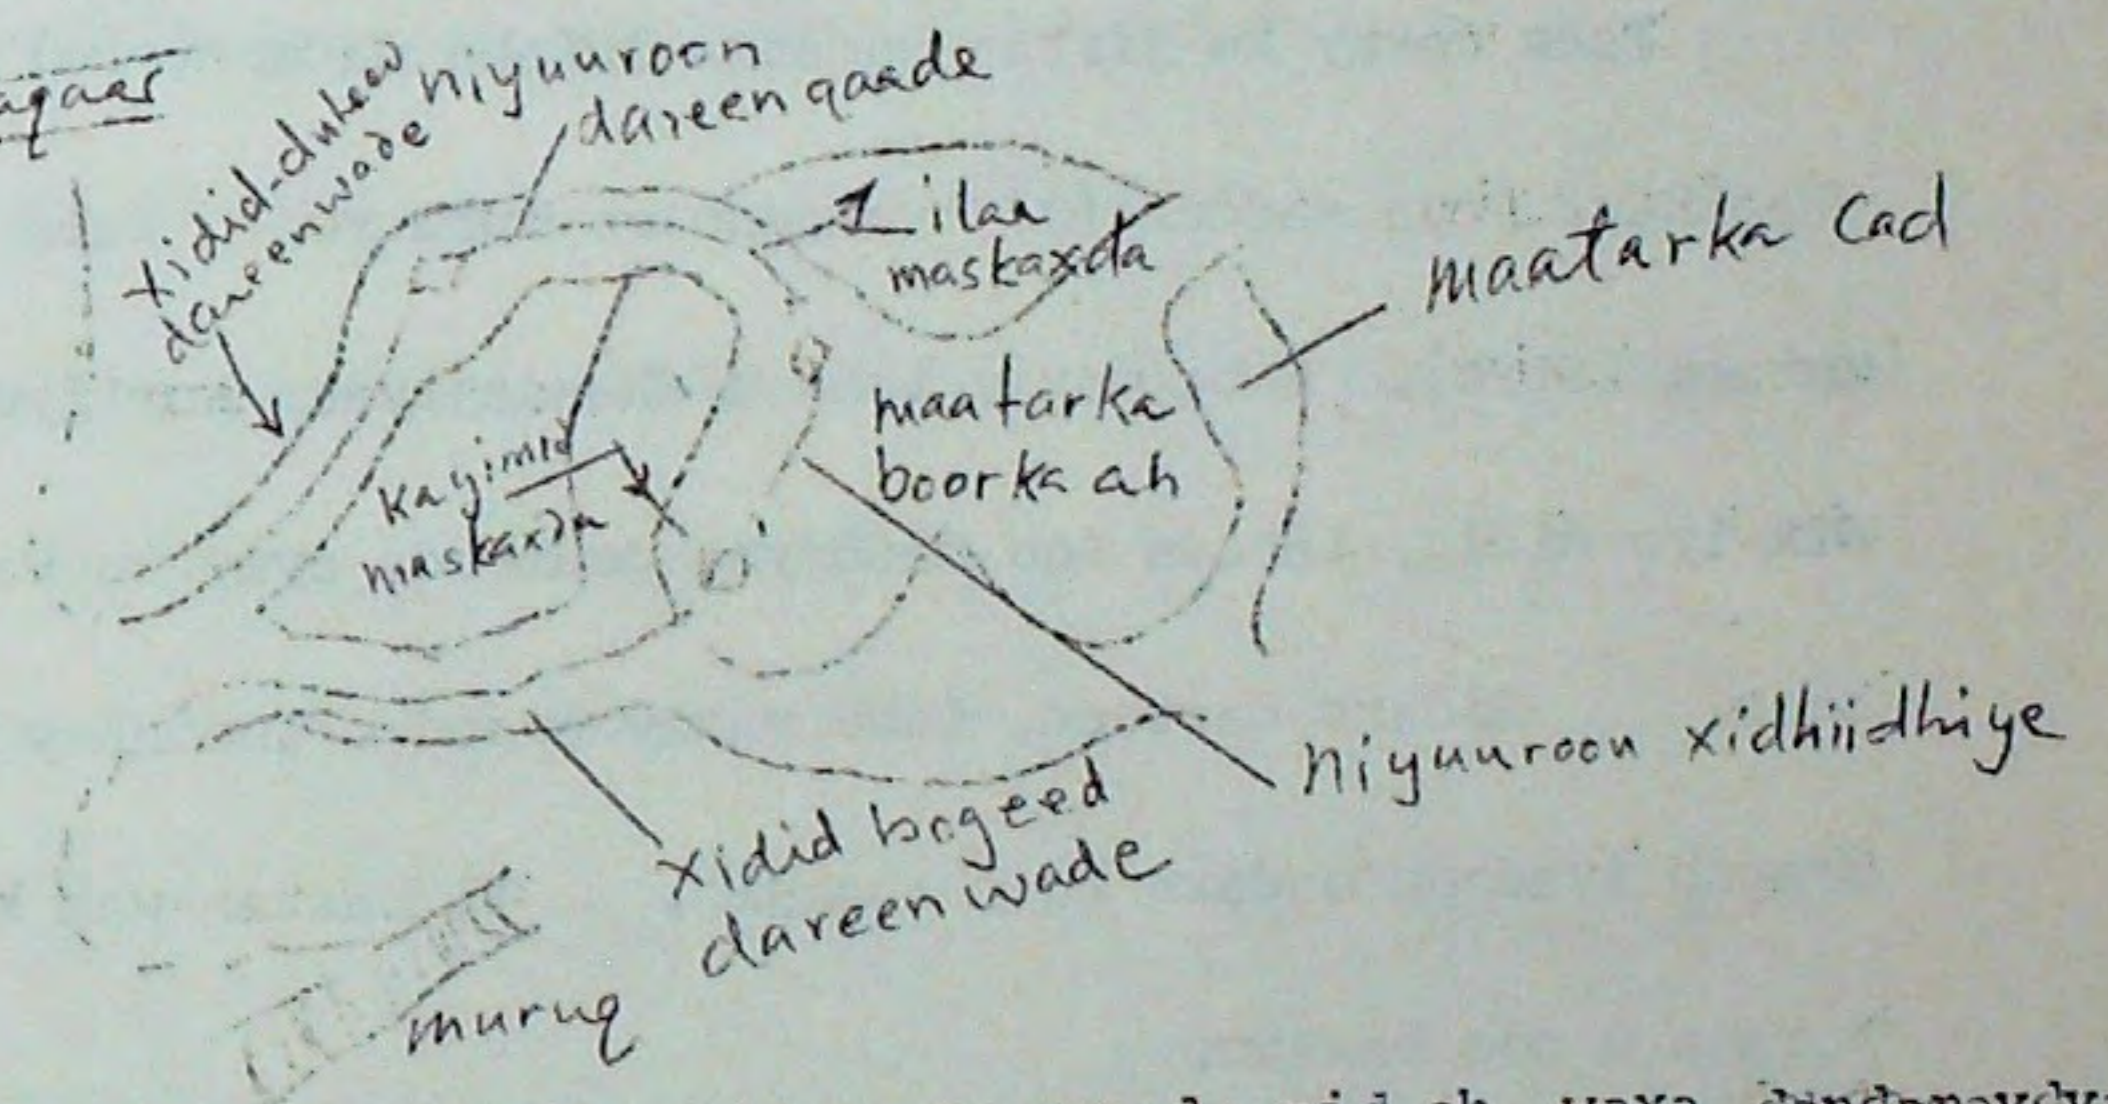 niyuuroon
dareenqaade
Xidid-dukeed
dareenwade
ilaa
maskaxda
maatarka Cad
maatarka
boorka ah
Ka yimid
maskaxda
niyuuroon xidhiidhiye
Xidid bogeed
dareenwade
muruq